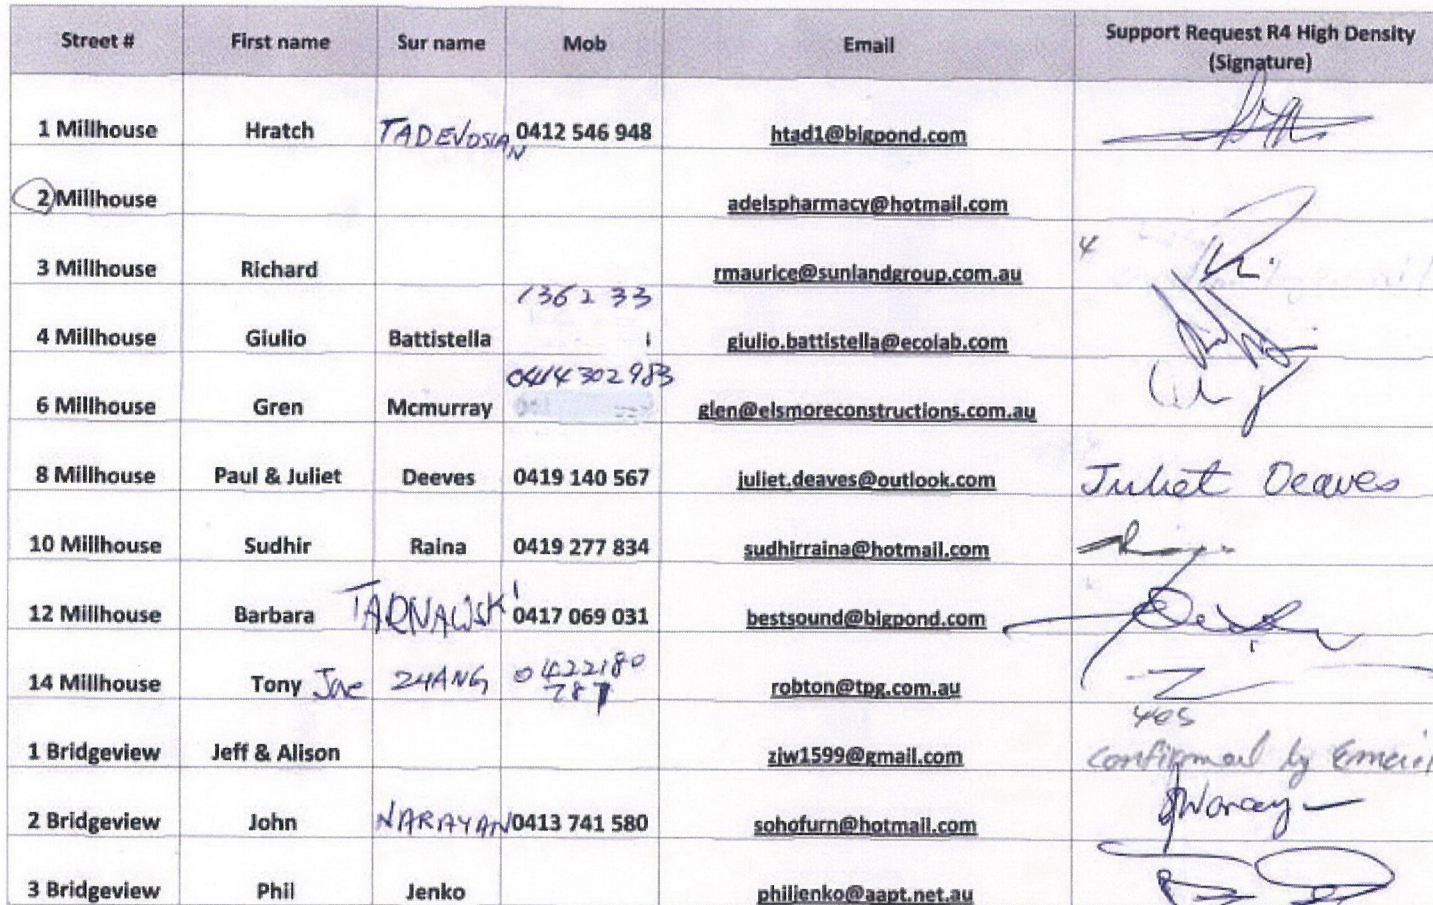 Street # First name Sur name Mob Email Support Request R4 High Density
(Signature)
1 Millhouse Hratch TADEVOSIAN 0412 546 948 htad1@bigpond.com
2 Millhouse adelspharmacy@hotmail.com
3 Millhouse Richard rmaurice@sunlandgroup.com.au
136233
4 Millhouse Giulio Battistella giulio.battistella@ecolab.com
0414302983
6 Millhouse Gren Mcmurray glen@elsmoreconstructions.com.au
8 Millhouse Paul & Juliet Deeves 0419 140 567 juliet.deaves@outlook.com Juliet Deaves
10 Millhouse Sudhir Raina 0419 277 834 sudhirraina@hotmail.com
12 Millhouse Barbara TARNAWSKI 0417 069 031 bestsound@bigpond.com
14 Millhouse Tony Joe ZHANG 0422180 robton@tpg.com.au
787
yes
1 Bridgeview Jeff & Alison zjw1599@gmail.com confirmed by Email
2 Bridgeview John NARAYAN 0413 741 580 sohofurn@hotmail.com
3 Bridgeview Phil Jenko philjenko@aapt.net.au